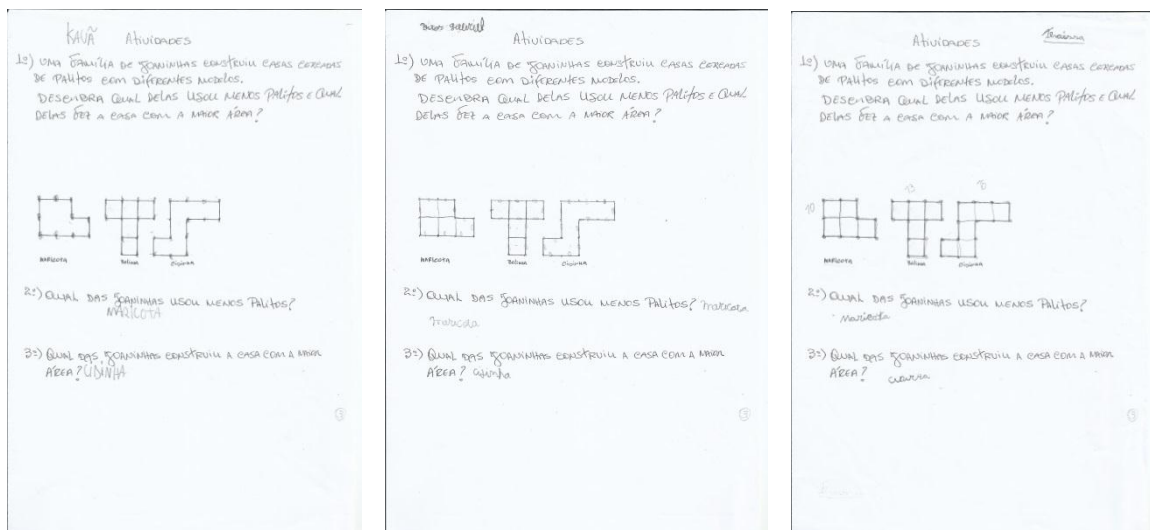 KAUÃ ATIVIDADES
1º) UMA FAMÍLIA DE JOANINHAS CONSTRUIU CASAS CERCADAS
DE PALITOS COM DIFERENTES MODELOS.
DESCUBRA QUAL DELAS USOU MENOS PALITOS E QUAL
DELAS FEZ A CASA COM A MAIOR ÁREA?
MARICOTA
2º) QUAL DAS JOANINHAS USOU MENOS PALITOS?
MARICOTA
3º) QUAL DAS JOANINHAS CONSTRUIU A CASA COM A MAIOR
ÁREA?
5
ATIVIDADES
1º) UMA FAMÍLIA DE JOANINHAS CONSTRUIU CASAS CERCADAS
DE PALITOS COM DIFERENTES MODELOS.
DESCUBRA QUAL DELAS USOU MENOS PALITOS E QUAL
DELAS FEZ A CASA COM A MAIOR ÁREA?
MARICOTA
2º) QUAL DAS JOANINHAS USOU MENOS PALITOS? maricota
maricota
3º) QUAL DAS JOANINHAS CONSTRUIU A CASA COM A MAIOR
ÁREA?
5
ATIVIDADES
1º) UMA FAMÍLIA DE JOANINHAS CONSTRUIU CASAS CERCADAS
DE PALITOS COM DIFERENTES MODELOS.
DESCUBRA QUAL DELAS USOU MENOS PALITOS E QUAL
DELAS FEZ A CASA COM A MAIOR ÁREA?
10 13
MARICOTA
2º) QUAL DAS JOANINHAS USOU MENOS PALITOS?
maricota
3º) QUAL DAS JOANINHAS CONSTRUIU A CASA COM A MAIOR
ÁREA?